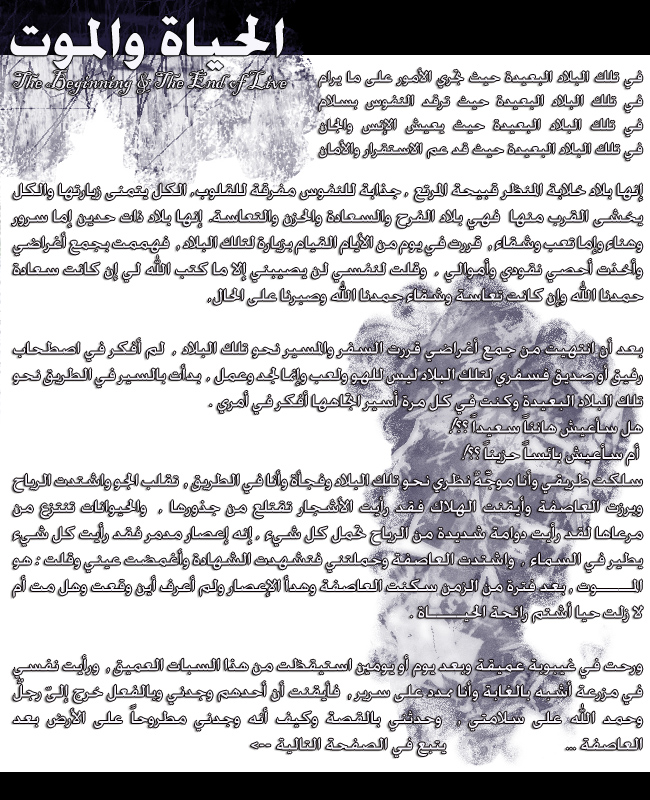 الحياة والموت
The Beginning & The End of Live
في تلك البلاد البعيدة حيث تجري الأمور على ما يرام
في تلك البلاد البعيدة حيث ترقد النفوس بسلام
في تلك البلاد البعيدة حيث يعيش الإنس والجان
في تلك البلاد البعيدة حيث قد عم الاستقرار والأمان
إنها بلاد خلابة المنظر قبيحة المرتع , جذابة للنفوس مفرقة للقلوب, الكل يتمنى زيارتها والكل
يخشى القرب منها فهي بلاد الفرح والسعادة والحزن والتعاسة, إنها بلاد ذات حدين إما سرور
وهناء وإما تعب وشقاء , قررت في يوم من الأيام القيام بزيارة لتلك البلاد , فهممت بجمع أغراضي
وأخذت أحصي نقودي وأموالي , وقلت لنفسي لن يصيبني إلا ما كتب الله لي إن كانت سعادة
حمدنا الله وإن كانت تعاسة وشقاء حمدنا الله وصبرنا على الحال,
بعد أن انتهيت من جمع أغراضي قررت السفر والمسير نحو تلك البلاد , لم أفكر في اصطحاب
رفيق أو صديق فسفري لتلك البلاد ليس للهو ولعب وإنما لجد وعمل , بدأت بالسير في الطريق نحو
تلك البلاد البعيدة وكنت في كل مرة أسير اتجاهها أفكر في أمري .
هل سأعيش هانئاً سعيداً ؟؟!
أم سأعيش بائساً حزيناً ؟؟!
سلكت طريقي وأنا موجّهٌ نظري نحو تلك البلاد وفجأة وأنا في الطريق , تقلب الجو واشتدت الرياح
وبرزت العاصفة وأيقنت الهلاك فقد رأيت الأشجار تقتلع من جذورها , والحيوانات تنتزع من
مرعاها لقد رأيت دوامة شديدة من الرياح تحمل كل شيء , إنه إعصار مدمر فقد رأيت كل شيء
يطير في السماء , واشتدت العاصفة وحملتني فتشهدت الشهادة وأغمضت عيني وقلت : هو
المـــــوت , بعد فترة من الزمن سكنت العاصفة وهدأ الإعصار ولم أعرف أين وقعت وهل مت أم
لا زلت حيا أشتم رائحة الحيـــــاة .
ورحت في غيبوبة عميقة وبعد يوم أو يومين استيقظت من هذا السبات العميق , ورأيت نفسي
في مزرعة أشبه بالغابة وأنا ممدد على سرير , فأيقنت أن أحدهم وجدني وبالفعل خرج إليّ رجلٌ
وحمد الله على سلامتي , وحدثني بالقصة وكيف أنه وجدني مطروحاً على الأرض بعد
العاصفة ... يتبع في الصفحة التالية -->